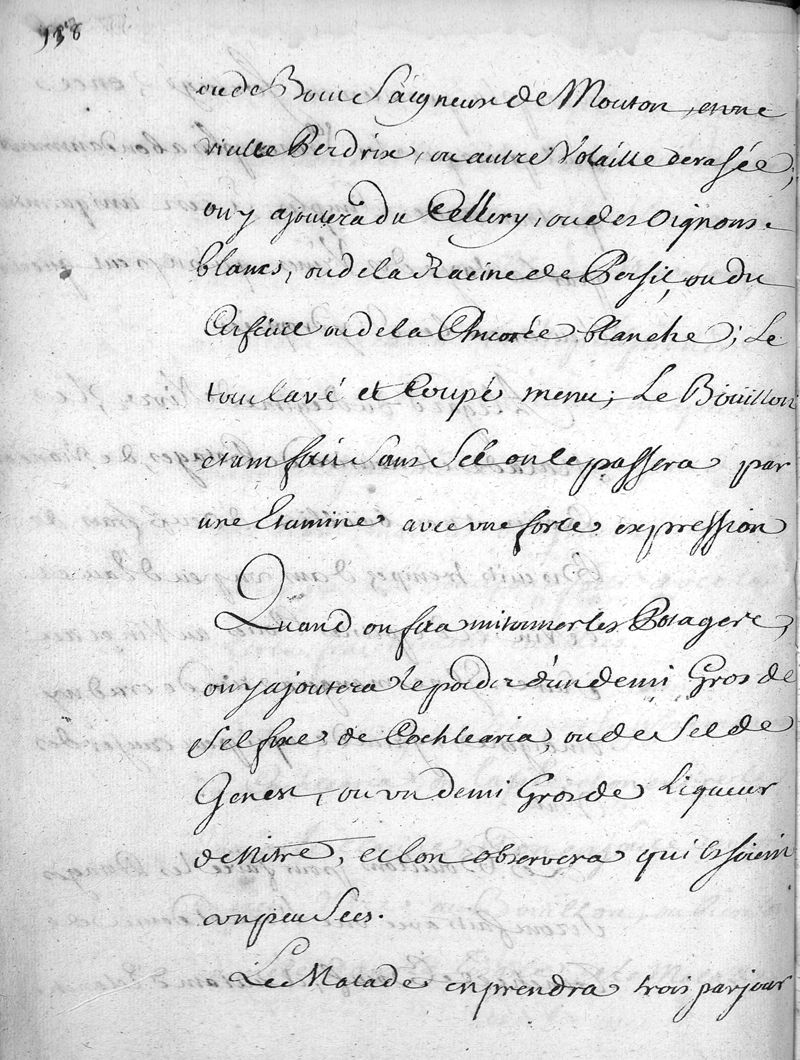 938
ou de Bout Saigneux de Mouton, et une
vielle Perdrix, ou autre Volaille derasée;
on y ajoutera du Cellery, ou des Oignons
blancs, ou de la Racine de Persil, ou du
Cerfeuil ou de la Chicorée blanche; Le
tout lavé et Coupé menu; Le Boüillon
etant fait sans Sel on le passera par
une Etamine avec une forte expression
Quand on fera mitonner les Potages,
on y ajoutera le poids d'un demi Gros de
Sel fixe de Cochlearia ou de Sel de
Genest, ou un demi Gros de Liqueur
de Nitre, et lon observera qu'ils soient
un peu Secs.
Le Malade en prendra trois par jour